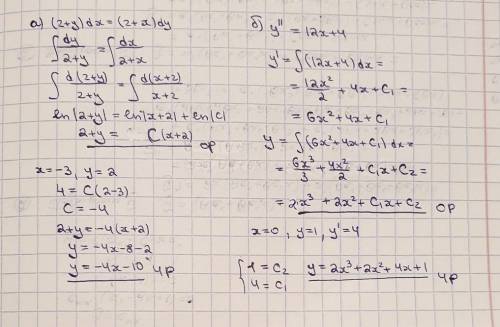 а) (2+y)dx = (2+x)dy
∫ dy/(2+y) = ∫ dx/(2+x)
∫ d(2+y)/(2+y) = ∫ d(x+2)/(x+2)
ln|2+y| = ln|x+2| + ln|C|
2+y = C(x+2)
ОР
x=-3, y=2
4 = C(2-3)
C = -4
2+y = -4(x+2)
y = -4x-8-2
y = -4x-10 ЧР
б) y'' = 12x+4
y' = ∫(12x+4)dx =
= 12x²/2 + 4x + C₁ =
= 6x²+4x+C₁
y = ∫(6x²+4x+C₁)dx =
= 6x³/3 + 4x²/2 + C₁x + C₂ =
= 2x³ + 2x² + C₁x + C₂ ОР
x=0, y=1, y'=4
{ 1 = C₂
4 = C₁
y = 2x³+2x²+4x+1 ЧР